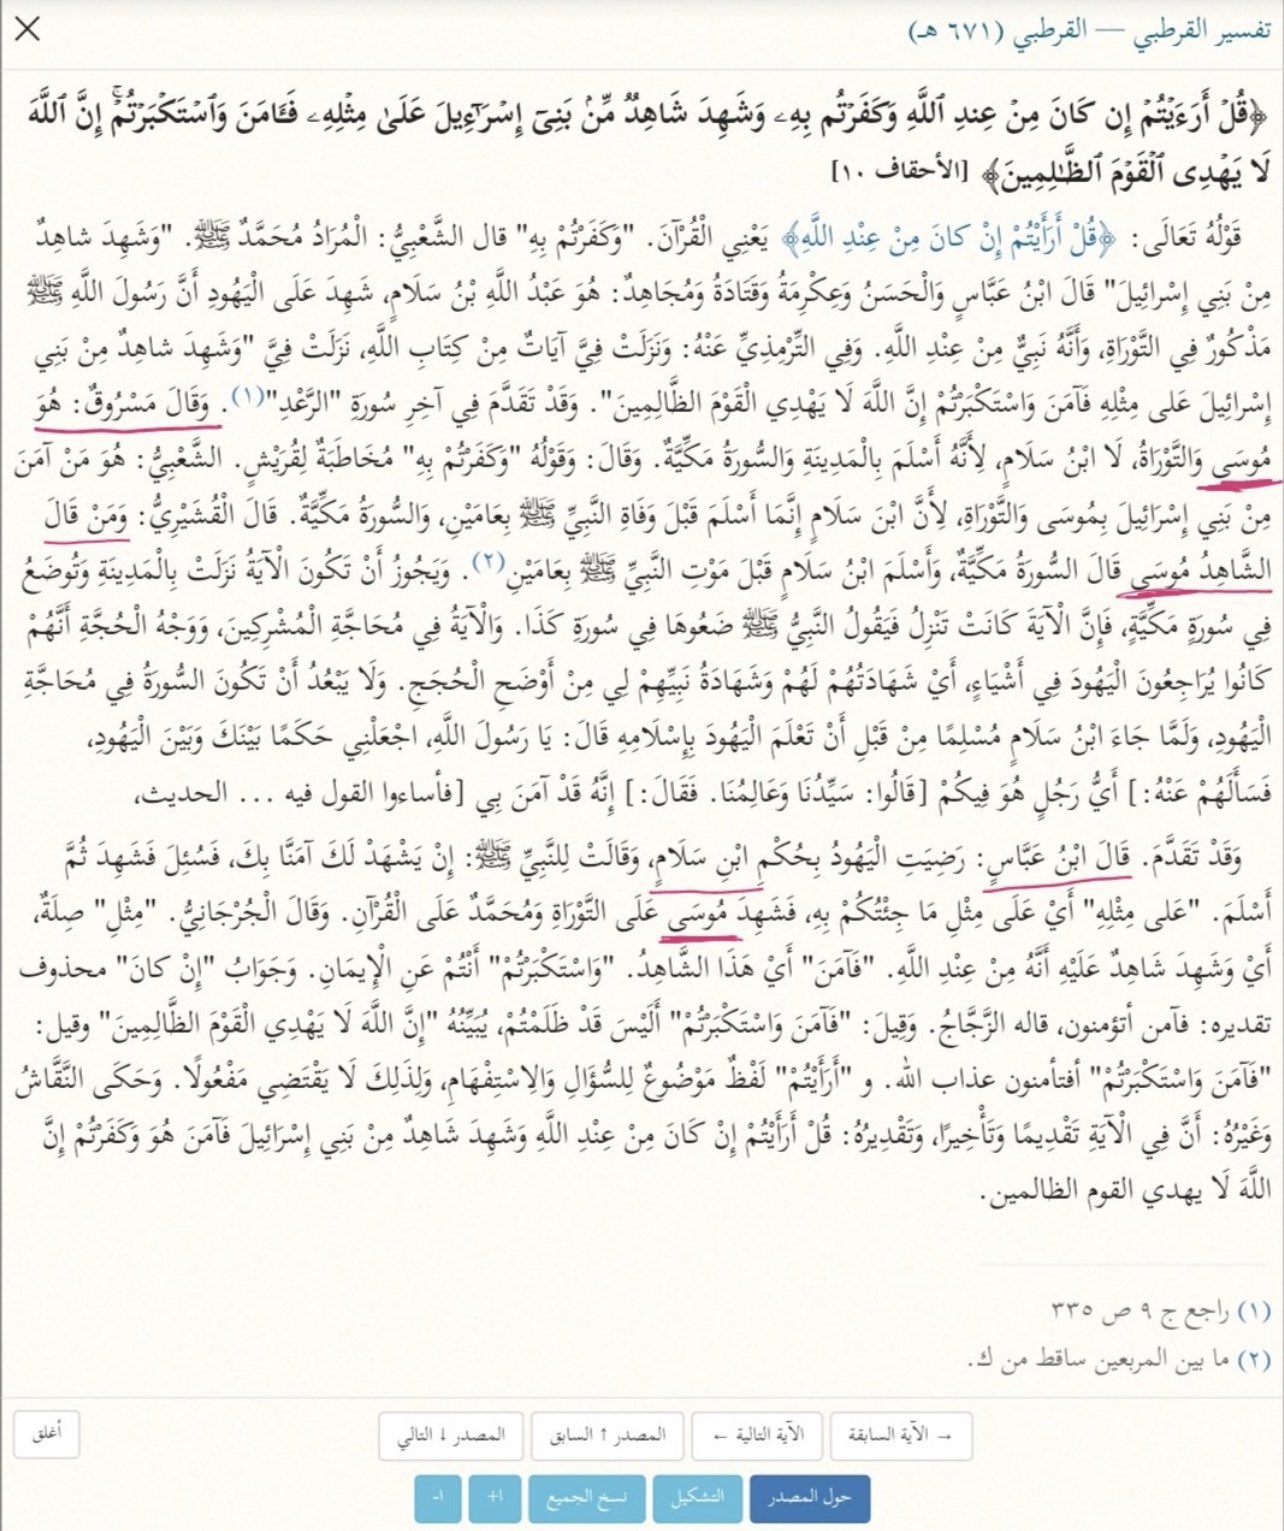 تفسير القرطبي — القرطبي (٦٧١ هـ)
﴿قُلۡ أَرَءَیۡتُمۡ إِن كَانَ مِنۡ عِندِ ٱللَّهِ وَكَفَرۡتُم بِهِۦ وَشَهِدَ شَاهِدࣱ مِّنۢ بَنِیۤ إِسۡرَ ٰۤءِیلَ عَلَىٰ مِثۡلِهِۦ فَـَٔامَنَ وَٱسۡتَكۡبَرۡتُمۡۚ إِنَّ ٱللَّهَ
لَا یَهۡدِی ٱلۡقَوۡمَ ٱلظَّـٰلِمِینَ﴾ [الأحقاف ١٠]
قَوْلُهُ تَعَالَى: ﴿قُلْ أَرَأَيْتُمْ إِنْ كانَ مِنْ عِنْدِ اللَّهِ﴾ يَعْنِي الْقُرْآنَ. "وَكَفَرْتُمْ بِهِ" قال الشَّعْبِيُّ: الْمُرَادُ مُحَمَّدٌ ﷺ. "وَشَهِدَ شاهِدٌ
مِنْ بَنِي إِسْرائِيلَ" قَالَ ابْنُ عَبَّاسٍ وَالْحَسَنُ وَعِكْرِمَةُ وَقَتَادَةُ وَمُجَاهِدٌ: هُوَ عَبْدُ اللَّهِ بْنُ سَلَامٍ، شَهِدَ عَلَى الْيَهُودِ أَنَّ رَسُولَ اللَّهِ ﷺ
مَذْكُورٌ فِي التَّوْرَاةِ، وَأَنَّهُ نَبِيٌّ مِنْ عِنْدِ اللَّهِ. وَفِي التِّرْمِذِيِّ عَنْهُ: وَنَزَلَتْ فِيَّ آيَاتٌ مِنْ كِتَابِ اللَّهِ، نَزَلَتْ فِيَّ "وَشَهِدَ شاهِدٌ مِنْ بَنِي
إِسْرائِيلَ عَلى مِثْلِهِ فَآمَنَ وَاسْتَكْبَرْتُمْ إِنَّ اللَّهَ لَا يَهْدِي الْقَوْمَ الظَّالِمِينَ". وَقَدْ تَقَدَّمَ فِي آخِرِ سُورَةِ "الرَّعْدِ"(١). وَقَالَ مَسْرُوقٌ: هُوَ
مُوسَى وَالتَّوْرَاةُ، لَا ابْنُ سَلَامٍ، لِأَنَّهُ أَسْلَمَ بِالْمَدِينَةِ وَالسُّورَةُ مَكِّيَّةٌ. وَقَالَ: وَقَوْلُهُ "وَكَفَرْتُمْ بِهِ" مُخَاطَبَةٌ لِقُرَيْشٍ. الشَّعْبِيُّ: هُوَ مَنْ آمَنَ
مِنْ بَنِي إِسْرَائِيلَ بِمُوسَى وَالتَّوْرَاةِ، لِأَنَّ ابْنَ سَلَامٍ إِنَّمَا أَسْلَمَ قَبْلَ وَفَاةِ النَّبِيِّ ﷺ بِعَامَيْنِ، وَالسُّورَةُ مَكِّيَّةٌ. قَالَ الْقُشَيْرِيُّ: وَمَنْ قَالَ
الشَّاهِدُ مُوسَى قَالَ السُّورَةُ مَكِّيَّةٌ، وَأَسْلَمَ ابْنُ سَلَامٍ قَبْلَ مَوْتِ النَّبِيِّ ﷺ بِعَامَيْنِ(٢). وَيَجُوزُ أَنْ تَكُونَ الْآيَةُ نَزَلَتْ بِالْمَدِينَةِ وَتُوضَعُ
فِي سُورَةٍ مَكِّيَّةٍ، فَإِنَّ الْآيَةَ كَانَتْ تَنْزِلُ فَيَقُولُ النَّبِيُّ ﷺ ضَعُوهَا فِي سُورَةِ كَذَا. وَالْآيَةُ فِي مُحَاجَّةِ الْمُشْرِكِينَ، وَوَجْهُ الْحُجَّةِ أَنَّهُمْ
كَانُوا يُرَاجِعُونَ الْيَهُودَ فِي أَشْيَاءٍ، أَيْ شَهَادَتُهُمْ لَهُمْ وَشَهَادَةُ نَبِيِّهِمْ لِي مِنْ أَوْضَحِ الْحُجَجِ. وَلَا يَبْعُدُ أَنْ تَكُونَ السُّورَةُ فِي مُحَاجَّةِ
الْيَهُودِ، وَلَمَّا جَاءَ ابْنُ سَلَامٍ مُسْلِمًا مِنْ قَبْلِ أَنْ تَعْلَمَ الْيَهُودُ بِإِسْلَامِهِ قَالَ: يَا رَسُولَ اللَّهِ، اجْعَلْنِي حَكَمًا بَيْنَكَ وَبَيْنَ الْيَهُودِ،
فَسَأَلَهُمْ عَنْهُ: [أَيُّ رَجُلٍ هُوَ فِيكُمْ [قَالُوا: سَيِّدُنَا وَعَالِمُنَا. فَقَالَ: [إِنَّهُ قَدْ آمَنَ بِي [فأساءوا القول فيه ... الحديث،
وَقَدْ تَقَدَّمَ. قَالَ ابْنُ عَبَّاسٍ: رَضِيَتِ الْيَهُودُ بِحُكْمِ ابْنِ سَلَامٍ، وَقَالَتْ لِلنَّبِيِّ ﷺ: إِنْ يَشْهَدْ لَكَ آمَنَّا بِكَ، فَسُئِلَ فَشَهِدَ ثُمَّ
أَسْلَمَ. "عَلى مِثْلِهِ" أَيْ عَلَى مِثْلِ مَا جِئْتُكُمْ بِهِ، فَشَهِدَ مُوسَى عَلَى التَّوْرَاةِ وَمُحَمَّدٌ عَلَى الْقُرْآنِ. وَقَالَ الْجُرْجَانِيُّ. "مِثْلِ" صِلَةٌ،
أَيْ وَشَهِدَ شَاهِدٌ عَلَيْهِ أَنَّهُ مِنْ عِنْدِ اللَّهِ. "فَآمَنَ" أَيْ هَذَا الشَّاهِدُ. "وَاسْتَكْبَرْتُمْ" أَنْتُمْ عَنِ الْإِيمَانِ. وَجَوَابُ "إِنْ كانَ" محذوف
تقديره: فآمن أتؤمنون، قاله الزَّجَّاجُ. وَقِيلَ: "فَآمَنَ وَاسْتَكْبَرْتُمْ" أَلَيْسَ قَدْ ظَلَمْتُمْ، يُبَيِّنُهُ "إِنَّ اللَّهَ لَا يَهْدِي الْقَوْمَ الظَّالِمِينَ" وقيل:
"فَآمَنَ وَاسْتَكْبَرْتُمْ" أفتأمنون عذاب الله. و "أَرَأَيْتُمْ" لَفْظٌ مَوْضُوعٌ لِلسُّؤَالِ وَالِاسْتِفْهَامِ، وَلِذَلِكَ لَا يَقْتَضِي مَفْعُولًا. وَحَكَى النَّقَّاشُ
وَغَيْرُهُ: أَنَّ فِي الْآيَةِ تَقْدِيمًا وَتَأْخِيرًا، وَتَقْدِيرُهُ: قُلْ أَرَأَيْتُمْ إِنْ كَانَ مِنْ عِنْدِ اللَّهِ وَشَهِدَ شَاهِدٌ مِنْ بَنِي إِسْرَائِيلَ فَآمَنَ هُوَ وَكَفَرْتُمْ إِنَّ
اللَّهَ لَا يهدي القوم الظالمين.
(١) راجع ج ٩ ص ٣٣٥
(٢) ما بين المربعين ساقط من ك.
→ الآية السابقة
الآية التالية ←
المصدر ↑ السابق
المصدر ↓ التالي
أغلق
حول المصدر
التشكيل
نسخ الجميع
ا+
ا-